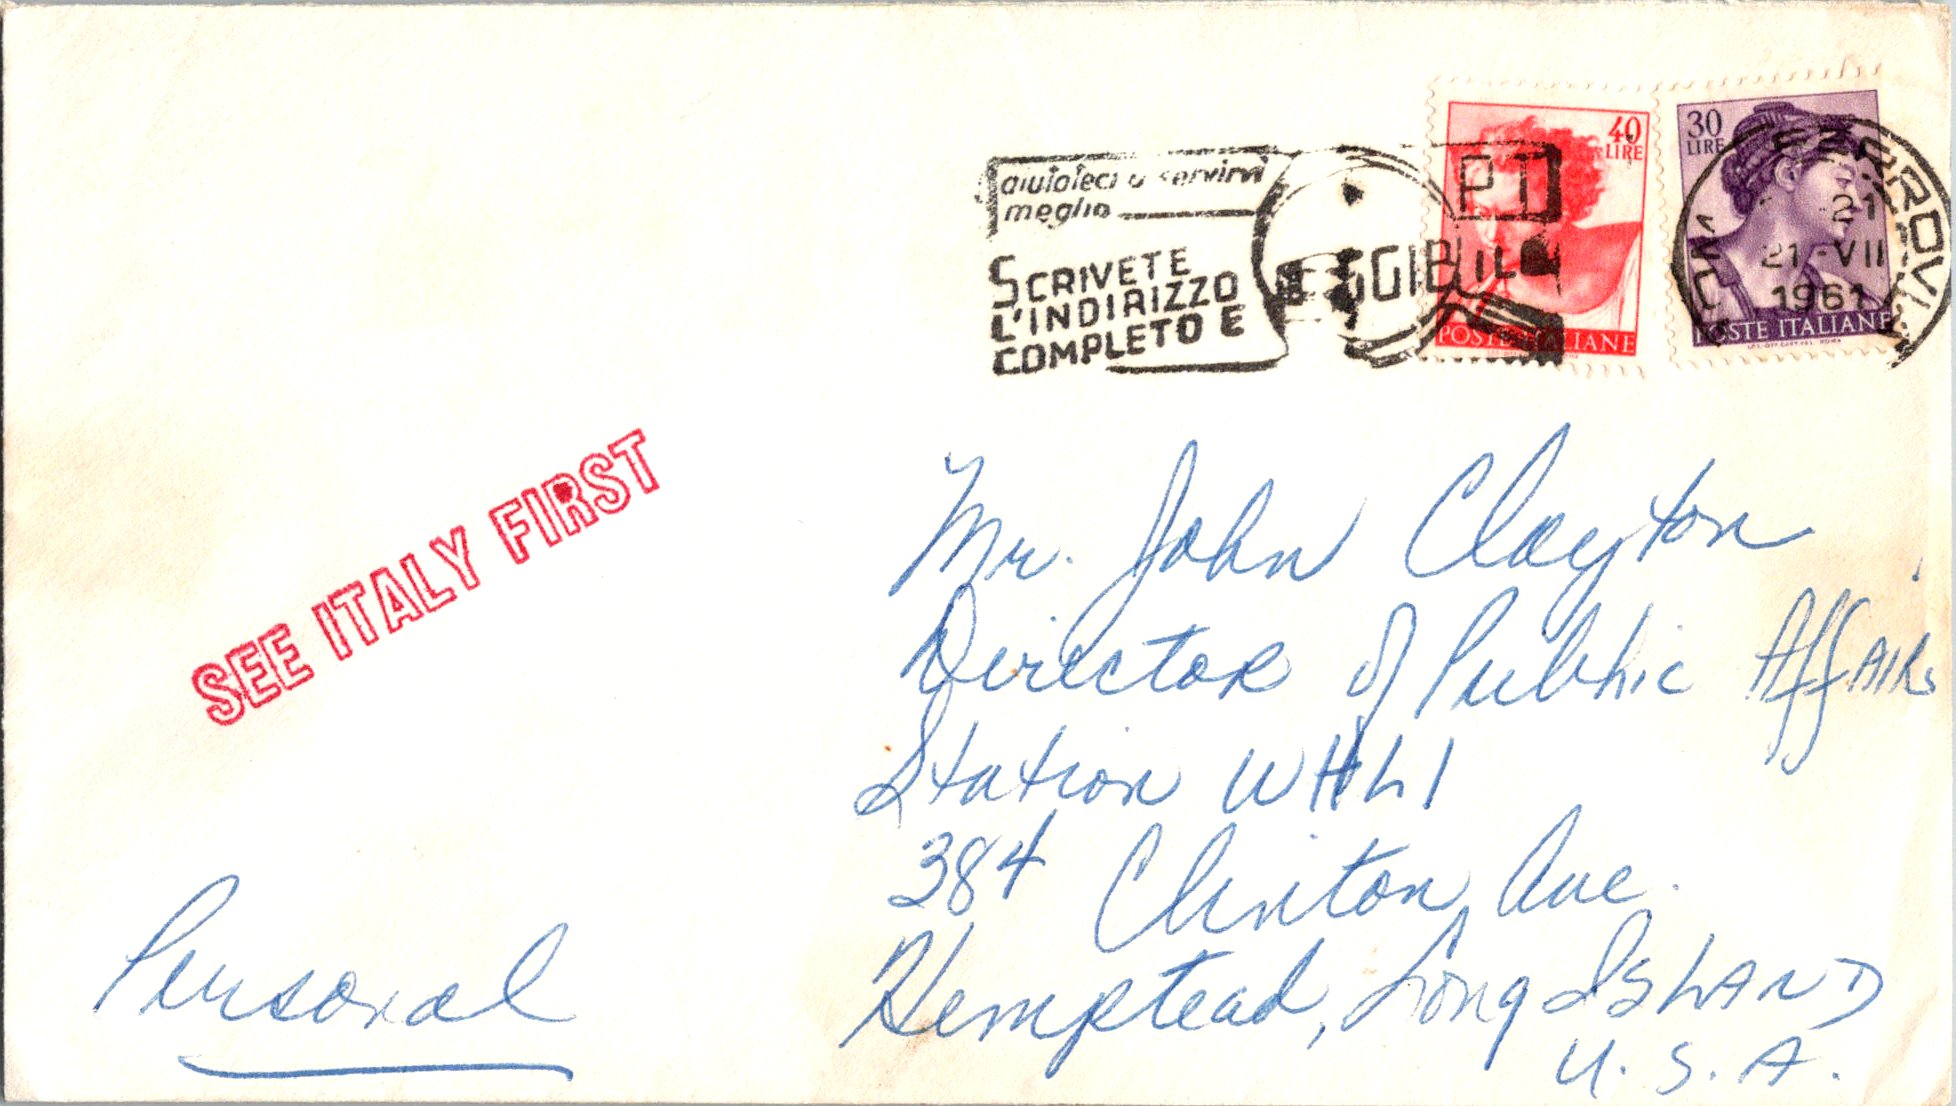 aiutateci a servirvi
meglio
PT
SCRIVETE
L'INDIRIZZO
COMPLETO E
LEGGIBILE
40
LIRE
POSTE ITALIANE
30
LIRE
POSTE ITALIANE
FERROVIA
21
21-VII
1961
SEE ITALY FIRST
Mr. John Clayton
Director of Public Affairs
Station WHLI
384 Clinton Ave.
Hempstead, Long ISLAND
U.S.A.
Personal